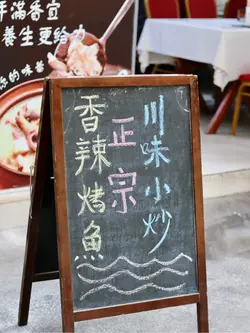 川味小炒
正宗
香辣烤魚
滿香宜
養生更给
的味